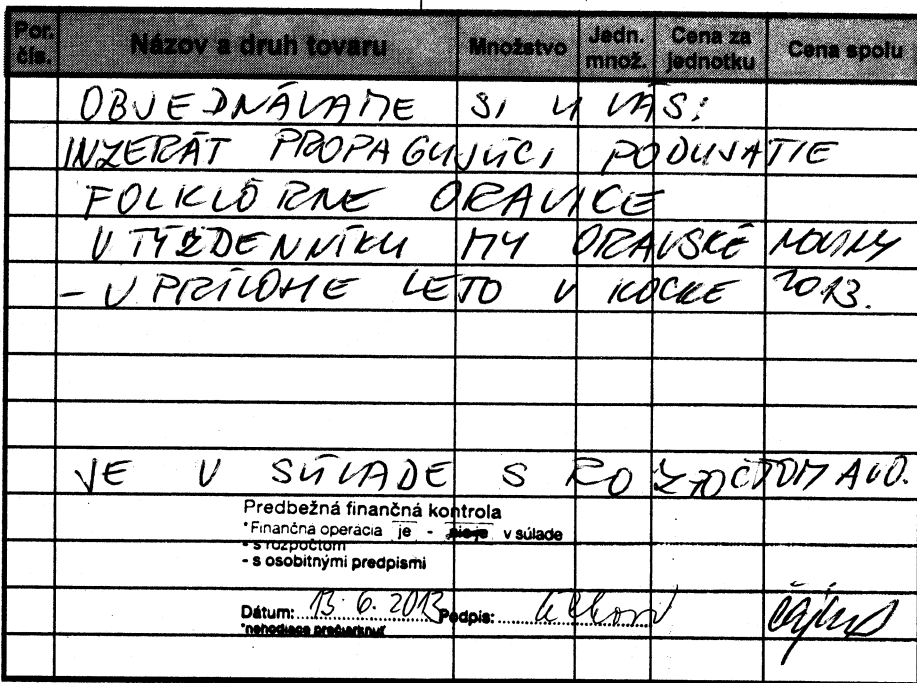 Por. čís. Názov a druh tovaru Množstvo Jedn. množ. Cena za jednotku Cena spolu
OBJEDNÁVAME SI U VÁS:
INZERÁT PROPAGUJÚCI PODUJATIE
FOLKLÓRNE ORAVICE
V TÝŽDENNÍKU MY ORAVSKÉ NOVINY
- V PRÍLOHE LETO V KOCKE 2013.
JE V SÚLADE S ROZPOČTOM
Predbežná finančná kontrola
*Finančná operácia je - nie je v súlade
- s rozpočtom
- s osobitnými predpismi
Dátum: 13. 6. 2013 Podpis:
*nehodiace prečiarknuť